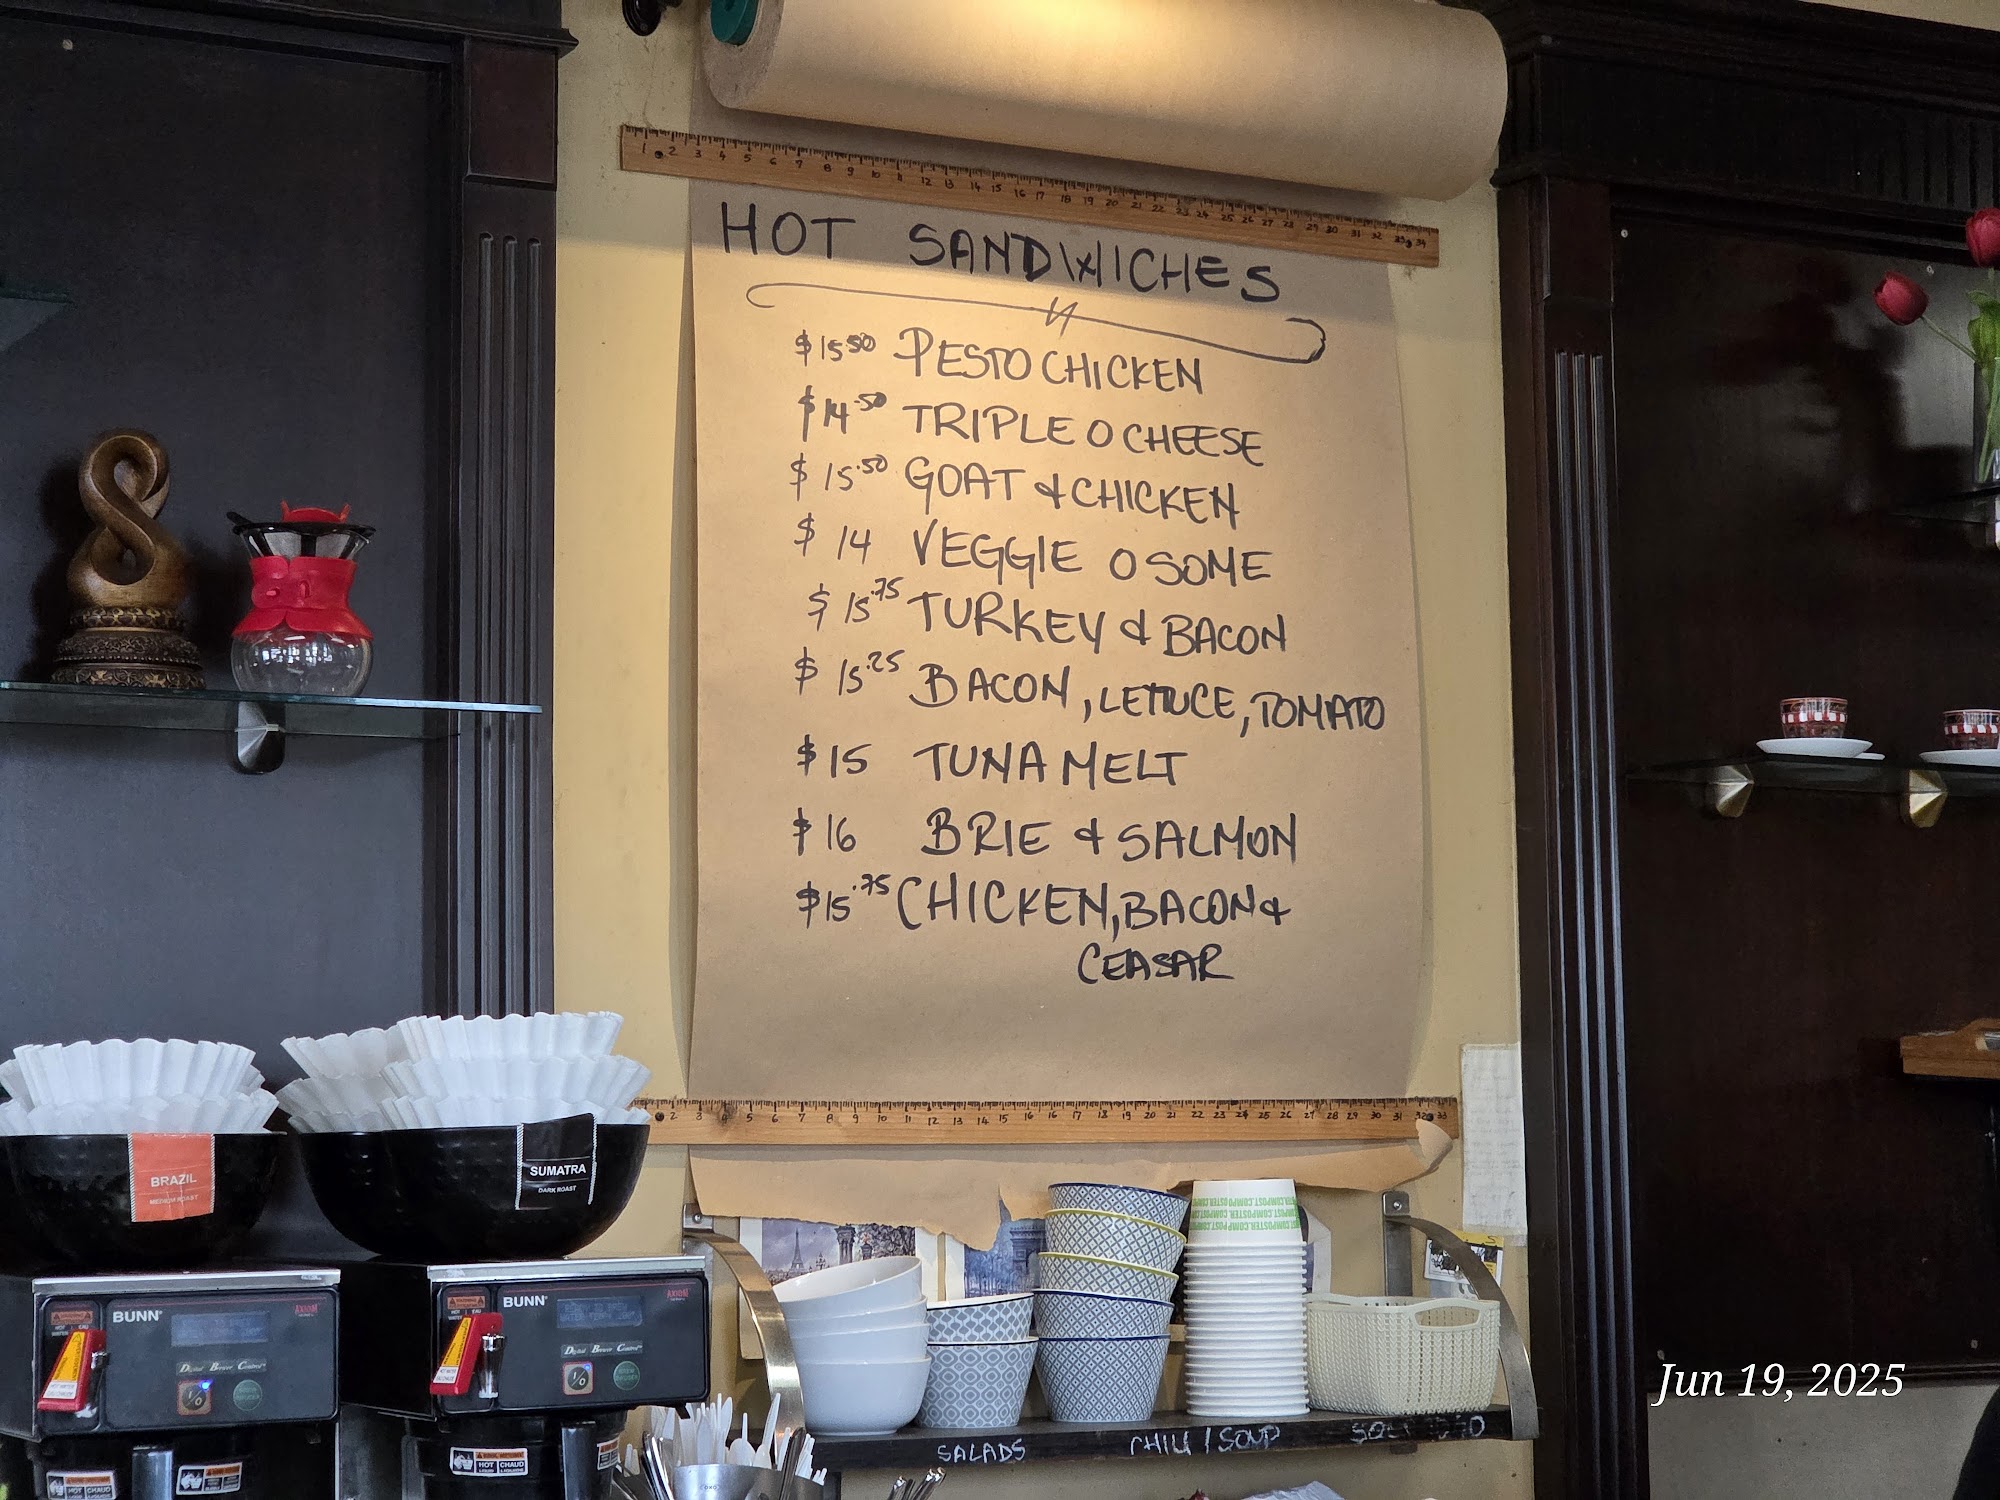 HOT SANDWICHES
$15.50 PESTO CHICKEN
$14.50 TRIPLE O CHEESE
$15.50 GOAT & CHICKEN
$14 VEGGIE O SOME
$15.75 TURKEY & BACON
$15.25 BACON, LETTUCE, TOMATO
$15 TUNA MELT
$16 BRIE & SALMON
$15.75 CHICKEN, BACON &
CEASAR
BRAZIL
MEDIUM ROAST
SUMATRA
DARK ROAST
BUNN
AXIOM
Digital Brewer Control
BUNN
AXIOM
Digital Brewer Control
HOT CHAUD
HOT CHAUD
SALADS
CHILI / SOUP
Jun 19, 2025